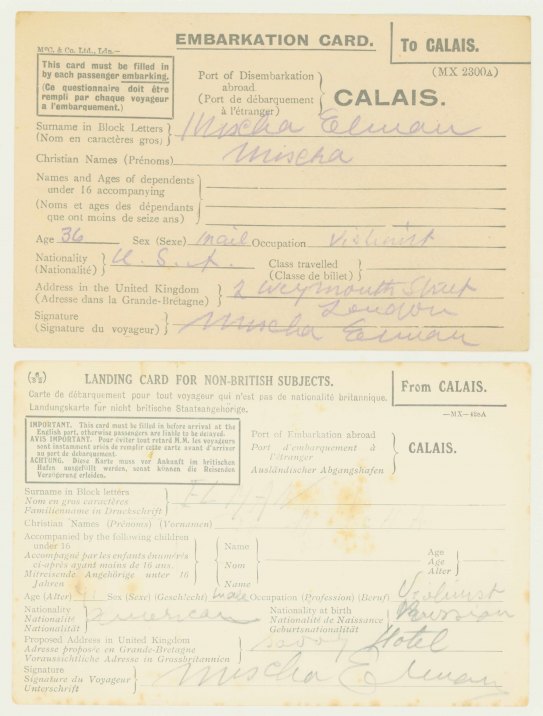 EMBARKATION CARD.
To CALAIS.
McC. & Co. Ltd., Ldn.—
(MX 2300A)
This card must be filled in
by each passenger embarking.
(Ce questionnaire doit être
rempli par chaque voyageur
a l'embarquement.)
Port of Disembarkation
abroad
(Port de débarquement
à l'étranger)
CALAIS.
Surname in Block Letters
(Nom en caractères gros)
Mischa Elman
Christian Names (Prénoms)
Mischa
Names and Ages of dependents
under 16 accompanying
(Noms et ages des dépendants
que ont moins de seize ans)
Age 36 Sex (Sexe) mail Occupation Violinist
Nationality
(Nationalité)
U.S.A.
Class travelled
(Classe de billet)
Address in the United Kingdom
(Adresse dans la Grande-Bretagne)
2 Weymouth Street
London
Signature
(Signature du voyageur)
Mischa Elman
LANDING CARD FOR NON-BRITISH SUBJECTS.
From CALAIS.
Carte de débarquement pour tout voyageur qui n'est pas de nationalité britannique.
Landungskarte für nicht britische Staatsangehörige.
—MX—
IMPORTANT. This card must be filled in before arrival at the
English port, otherwise passengers are liable to be delayed.
AVIS IMPORTANT. Pour éviter tout retard M.M. les voyageurs
sont instamment priés de remplir cette carte avant d'arriver
au port de débarquement.
ACHTUNG. Diese Karte muss vor Ankunft im britischen
Hafen ausgefüllt werden, sonst können die Reisenden
Verzögerung erleiden.
Port of Embarkation abroad
Port d'embarquement à
l'étranger
Ausländischer Abgangshafen
CALAIS.
Surname in Block letters
Nom en gros caractères
Familienname in Druckschrift
Christian Names (Prénoms) (Vornamen)
Accompanied by the following children
under 16
Accompagné par les enfants énumérés
ci-après ayant moins de 16 ans
Mitreisende Angehörige unter 16
Jahren
Name
Nom
Name
Age
Age
Alter
Age (Alter) Sex (Sexe) (Geschlecht) male Occupation (Profession) (Beruf) Violinist
Nationality
Nationalité
Nationalität
American
Nationality at birth
Nationalité de Naissance
Geburtsnationalität
Russian
Proposed Address in United Kingdom
Adresse proposée en Grande-Bretagne
Voraussichtliche Adresse in Grossbritannien
Savoy Hotel
Signature
Signature du Voyageur
Unterschrift
Mischa Elman